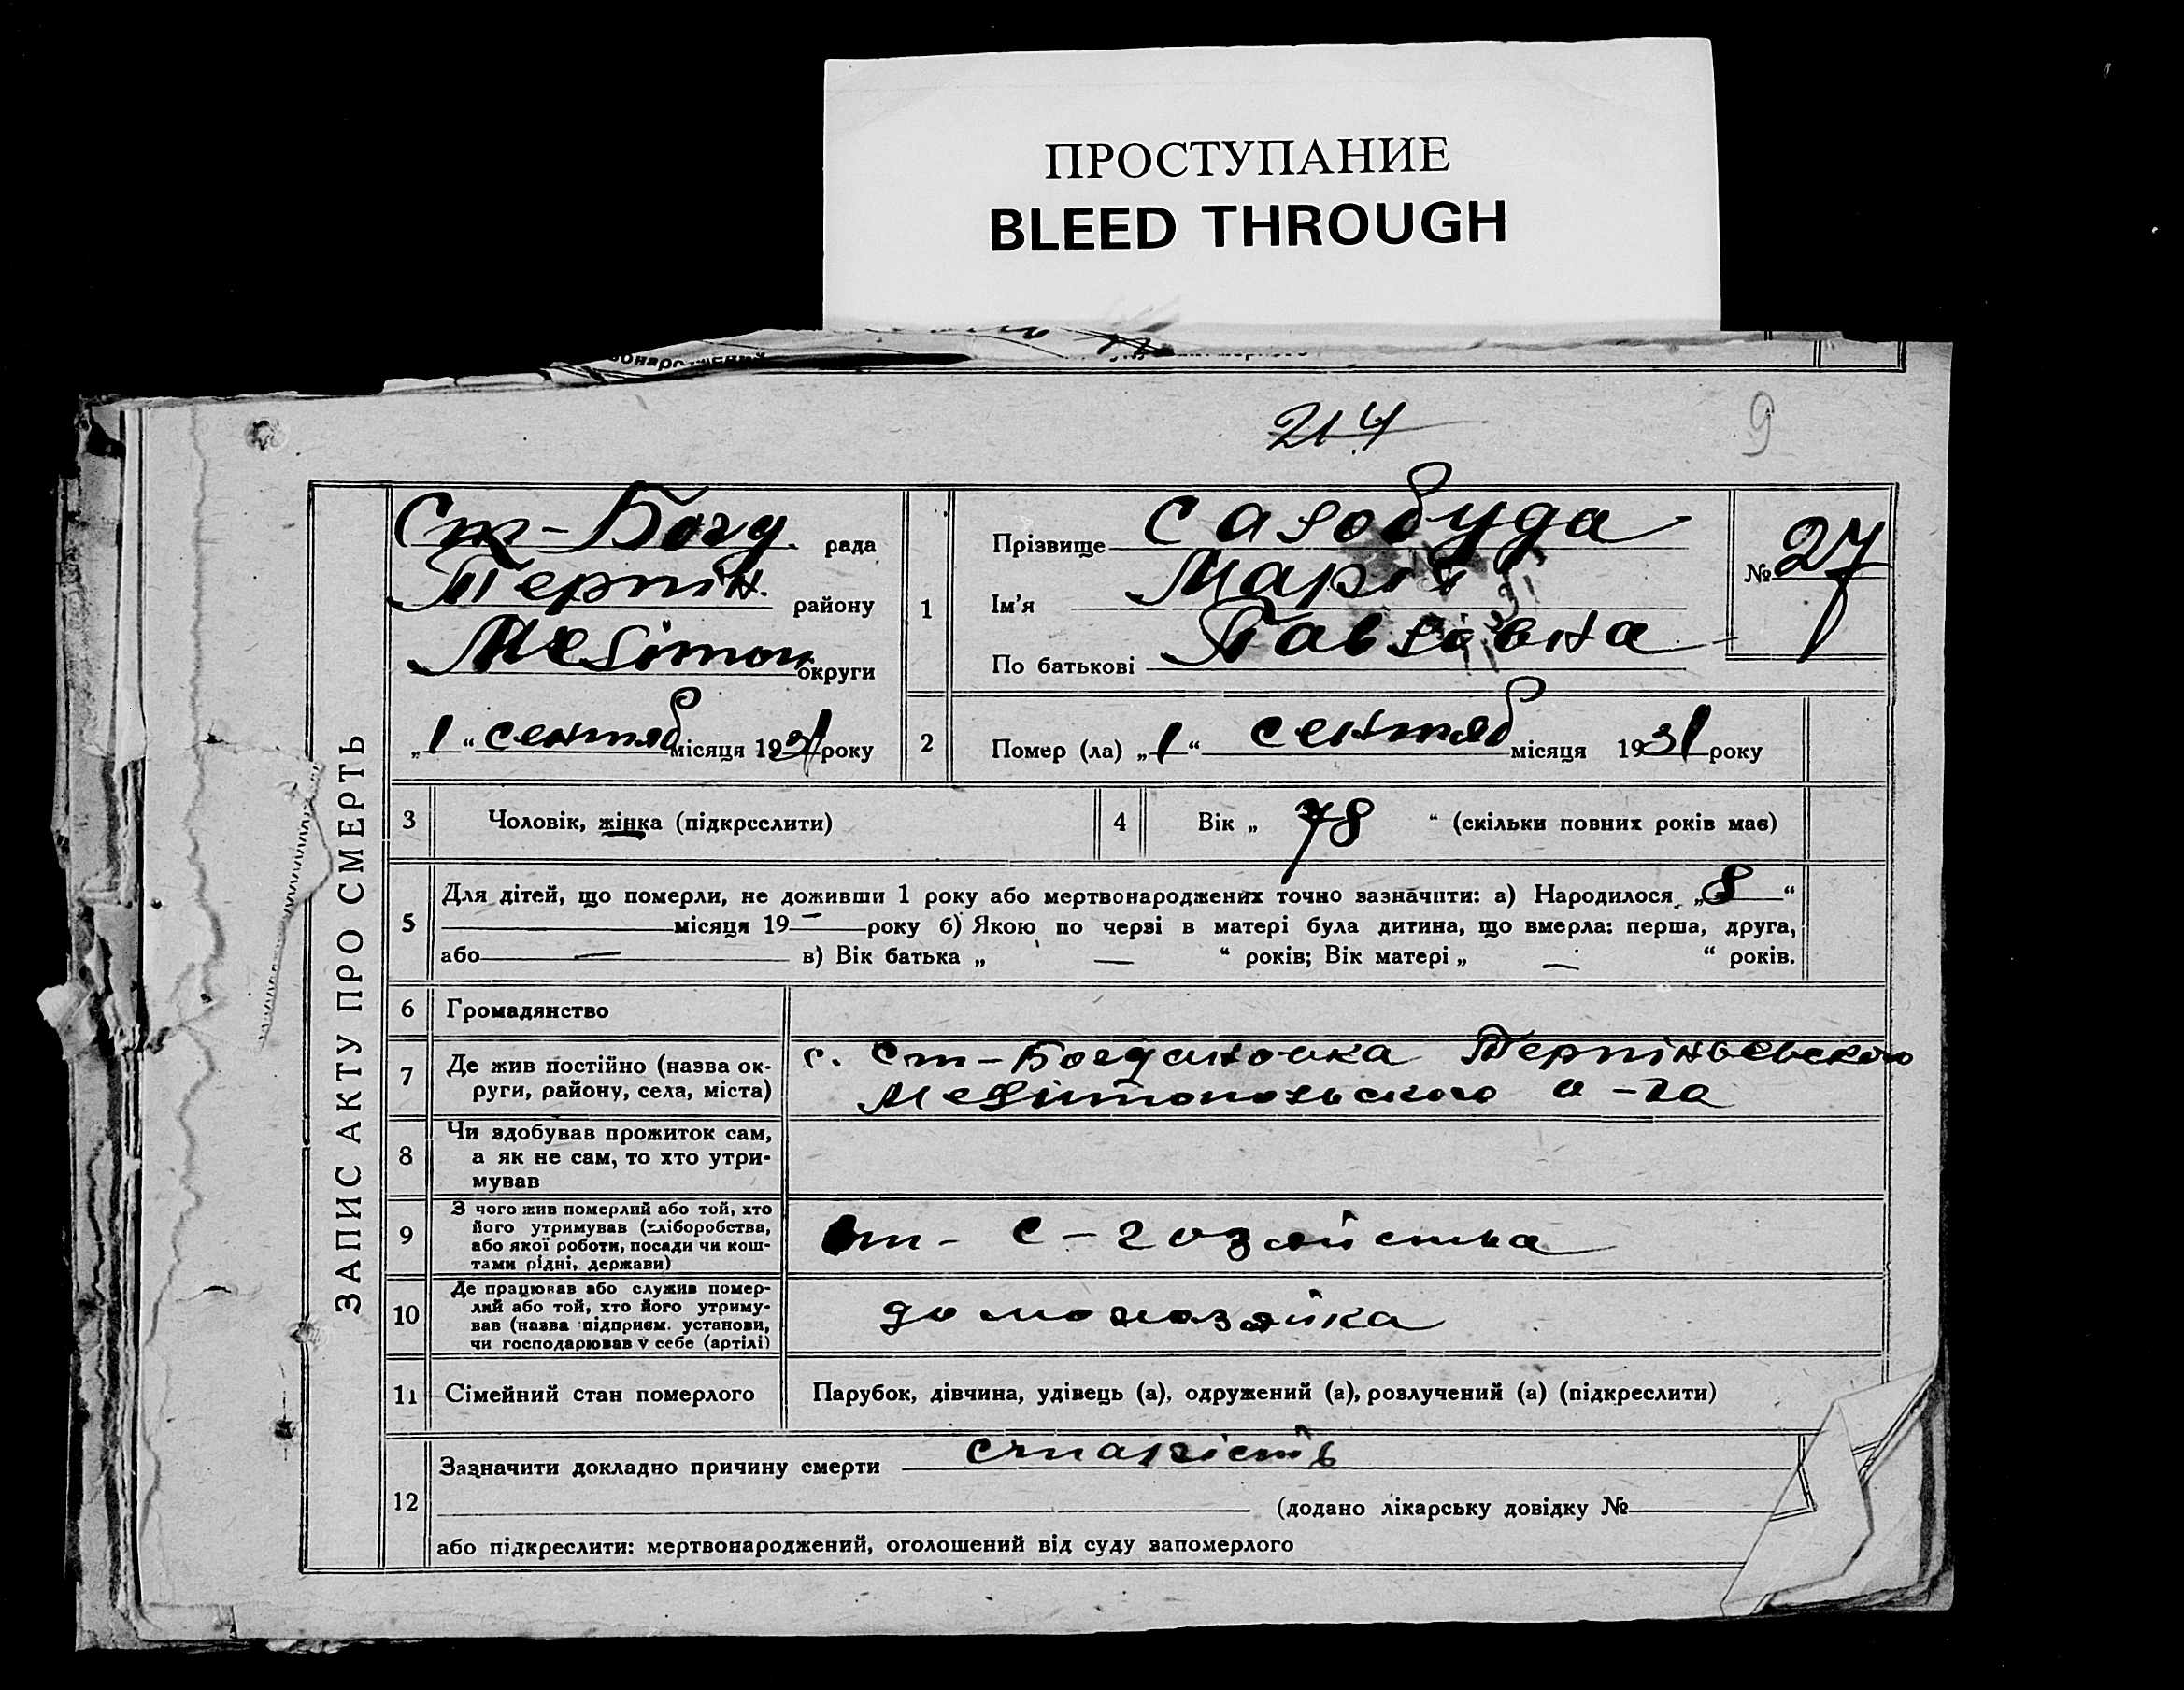 ПРОСТУПАНИЕ
BLEED THROUGH
214
9
ЗАПИС АКТУ ПРО СМЕРТЬ
Ст-Богд. рада
Терпін. району
Мелітоп округи
„1“ сентяб місяця 1931 року
1
Прізвище Салобуда
Ім'я Марія
По батькові Павлівна
№ 27
2 Помер (ла) „1“ сентяб місяця 1931 року
3 Чоловік, жінка (підкреслити)
4 Вік „ 78 “ (скільки повних років має)
5 Для дітей, що померли, не доживши 1 року або мертвонароджених точно зазначити: а) Народилося „8“
місяця 19— року б) Якою по черзі в матері була дитина, що вмерла: перша, друга,
або — в) Вік батька „ — “ років; Вік матері „ — “ років.
6 Громадянство
7 Де жив постійно (назва округи, району, села, міста)
с. Ст-Богдановка Терпіньевского
Мелітопольского о-га
8 Чи здобував прожиток сам,
а як не сам, то хто утри-
мував
9 З чого жив померлий або той, хто
його утримував (хліборобства,
або якої роботи, посади чи кош-
тами рідні, держави)
от- с-гозяйства
10 Де працював або служив помер-
лий або той, хто його утриму-
вав (назва підприєм. установи,
чи господарював у себе (артілі)
домохозяйка
11 Сімейний стан померлого
Парубок, дівчина, удівець (а), одружений (а), розлучений (а) (підкреслити)
12 Зазначити докладно причину смерти старість
(додано лікарську довідку №
або підкреслити: мертвонароджений, оголошений від суду запомерлого